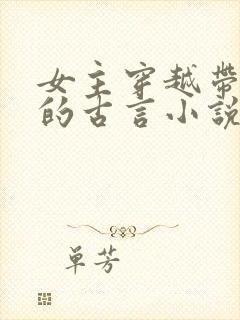 女主穿越带
的古言小说
单芳